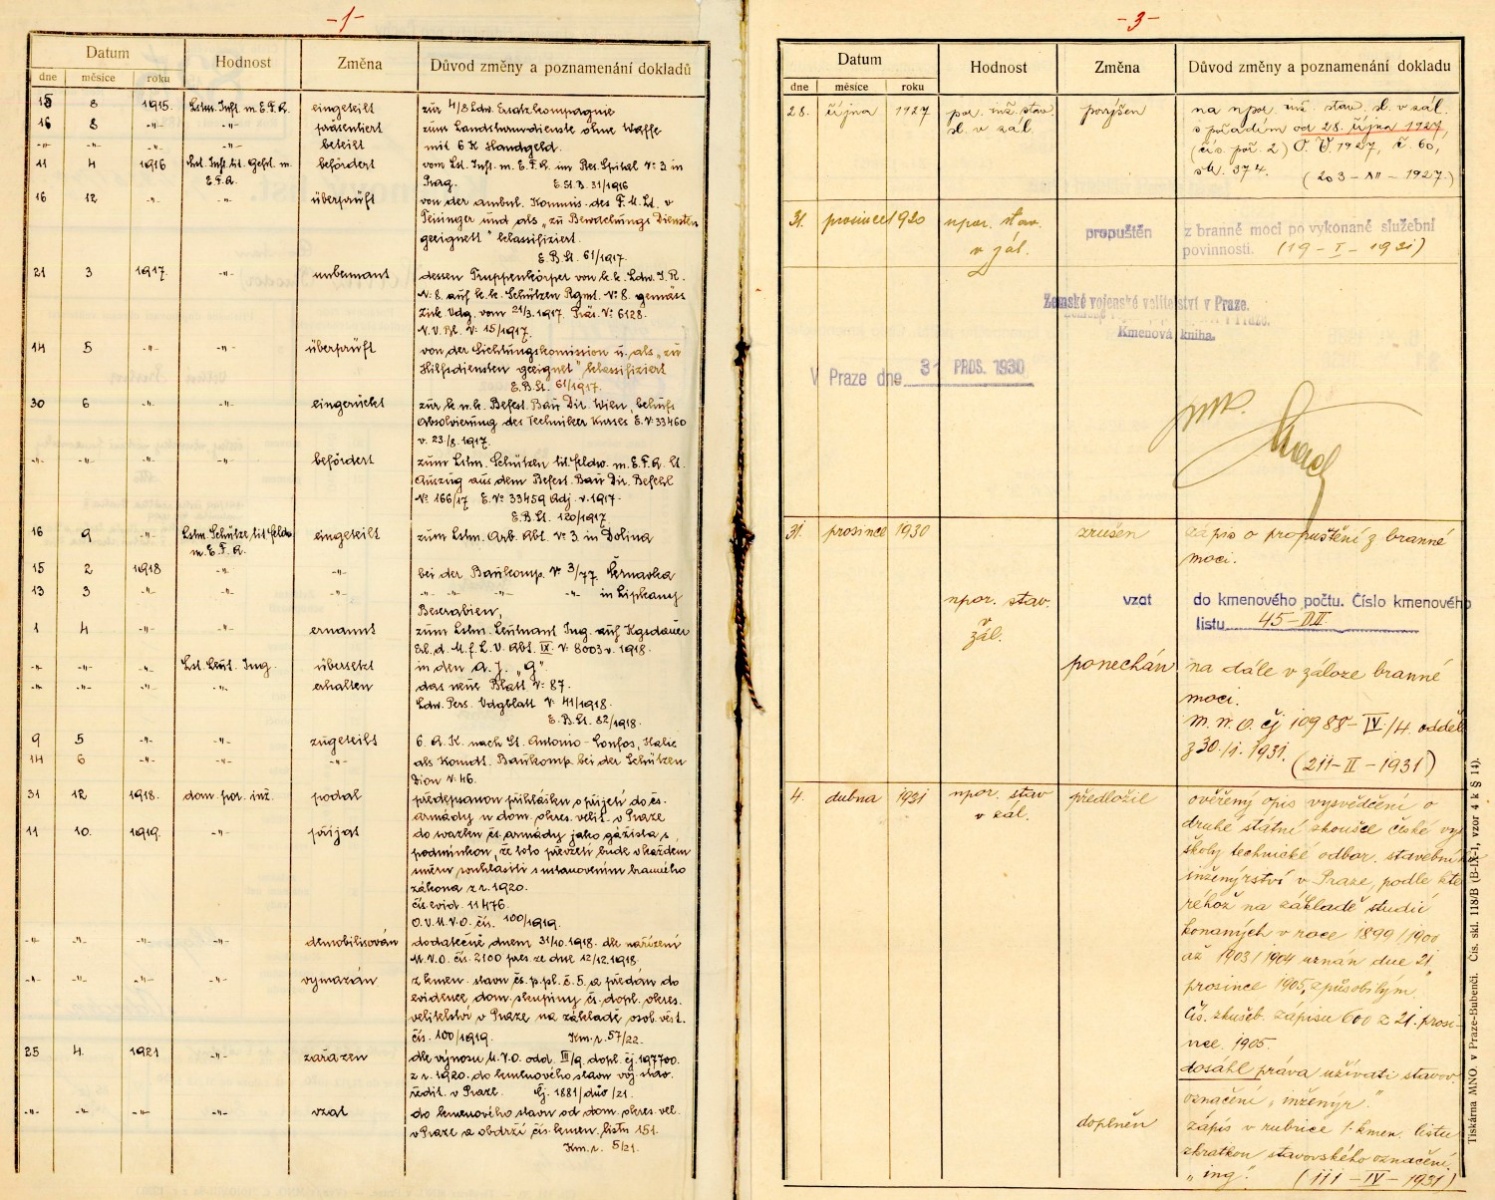 -1-
Datum
Hodnost
Změna
Důvod změny a poznamenání dokladů
dne měsíce roku
15 8 1915. Lstm. Inft. m. E. F. A. eingeteilt zur 4/8 Ldw. Ersatzkompagnie
16 8 -"- -"- präsentiert zum Landsturmdienste ohne Waffe
-"- -"- -"- -"- beteilt mit 6 K Handgeld.
11 4 1916 Lst. Inft. tit. Gefrt. m. befördert vom Lst. Inft. m. E. F. A. im Res. Spital Nº 3 in
E. F. A. Prag. E. Bl. B. 31/1916
16 12 -"- -"- überprüft von der ambul. Kommis. des F. M. Lt. v
Peisinger und als „zu Bewachungs Diensten
geeignett" klassifiziert.
E. B. Bl. 61/1917.
21 3 1917. -"- umbenannt dessen Truppenkörper von k. k. Ldw. I. R.
Nº 8 auf k. k. Schützen Rgmt. Nº 8. gemäss
Zirk. Vdg. vom 21/3. 1917. Präs. Nº 6128.
N. V. Bl. Nº 15/1917.
14 5 -"- -"- überprüft von der Sichtungskomission u. als „zu
Hilfsdiensten geeignet" klassifiziert
E. B. Bl. 61/1917.
30 6 -"- -"- eingerückt zur k. u. k. Befest. Bau Dir. Wien, behufs
Absolvierung des Techniker Kurses E. Nº 33460
v. 23./8. 1917.
-"- -"- -"- -"- befördert zum Lstm. Schützen tit. feldw. m. E. F. A. lt.
Auszug aus dem Befest. Bau Dir. Befehl
Nº 166/17 E. Nº 33459 Adj. v. 1917.
E. B. Bl. 120/1917
16 9 -"- Lstm. Schütze tit. feldw. eingeteilt zum Lstm. Arb. Abt. Nº 3 in Dolina
m. E. F. A.
15 2 1918 -"- -"- bei der Baukomp. Nº 3/77. Černavka
13 3 -"- -"- -"- -"- -"- -"- -"- in Lipkany
Bessrabien,
1 4 -"- -"- ernannt zum Lstm. Leutnant Ing. auf Kgsdauer
Erl. d. M. f. L. V. Abt. IX. Nº 8003 v. 1918.
-"- -"- -"- Lst. Leut. Ing. übersetzt in den A. J. „g".
-"- -"- -"- -"- erhalten das neue Blatt Nº 87.
Ldw. Pers. Vdgblatt Nº 41/1918.
E. B. Bl. 82/1918.
9 5 -"- -"- zugeteilt 6. A. K. nach St. Antonio - Confos, Italie
14 6 -"- -"- -"- als Komdt. Baukomp. bei der Schützen
Dion Nº 46.
31 12 1918. dom. por. inž. podal předepsanou přihlášku o přijetí do čs.
armády u dom. okres. velit. v Praze
11 10. 1919. -"- přijat do svazku čs. armády jako gážista s
podmínkou, že toto převzetí bude v každém
směru souhlasiti s ustanovením branného
zákona z r. 1920.
čís. evid. 11476.
O. V. M. V. O. čís. 100/1919.
-"- -"- -"- -"- demobilisován dodatečně dnem 31/10. 1918. dle nařízení
M. V. O. čís. 2100 pres ze dne 12/12. 1918.
-"- -"- -"- -"- vymazán z kmen. stavu čs. p. pl. č. 5. a předán do
evidence dom. skupiny čs. dopl. okres.
velitelství v Praze na základě osob. věst.
čís. 100/1919. Km. ř. 57/22.
25 4. 1921 -"- zařazen dle výnosu M. V. O. odd. III/9. dopl. čj. 197700.
z r. 1920. do kmenového stavu voj. stav.
ředit. v Praze. Čj. 1881/dův/21.
-"- -"- -"- -"- vzat do kmenového stavu od dom. okres. vel.
v Praze a obdrží čís. kmen. listu 151.
Km. ř. 5/21.
-3-
Datum
Hodnost
Změna
Důvod změny a poznamenání dokladu
dne měsíce roku
28. října 1927 por. inž. stav. povýšen na npor. inž. stav. sl. v zál.
sl. v zál. s pořadím od 28. října 1927,
(čís. poř. 2) O. V. 1927, č. 60,
str. 374. (203 - XII - 1927.)
31. prosince 1930 npor. stav. propuštěn z branné moci po vykonané služební
v zál. povinnosti. (19 - I - 1931)
Zemské vojenské velitelství v Praze.
Kmenová kniha.
V Praze dne 31 PROS. 1930
31. prosince 1930 zrušen zápis o propuštění z branné
moci.
npor. stav. vzat do kmenového počtu. Číslo kmenového
v zál. listu 45-
ponechán na dále v záloze branné
moci.
M. N. O. čj 10988 - IV./4. odděl.
z 30./1. 1931. (211 - II - 1931)
4. dubna 1931 npor. stav předložil ověřený opis vysvědčení o
v zál. druhé státní zkoušce české vys.
školy technické odbor. stavební
inženýrství v Praze, podle kte
réhož na základě studií
konaných v roce 1899/1900
až 1903/1904 uznán dne 21
prosince 1905 „způsobilým"
čís. zkušeb. zápisu 600 z 21. prosi-
nce 1905.
dosáhl práva užívati stavov.
označení „inženýr."
doplněn zápis v rubrice 1. kmen. listu
zkratkou stavovského označení
„ing". (111 - IV - 1931)
Tiskárna MNO. v Praze-Bubenči. Čís. skl. 118/B (B-IX-1, vzor 4 k § 14).